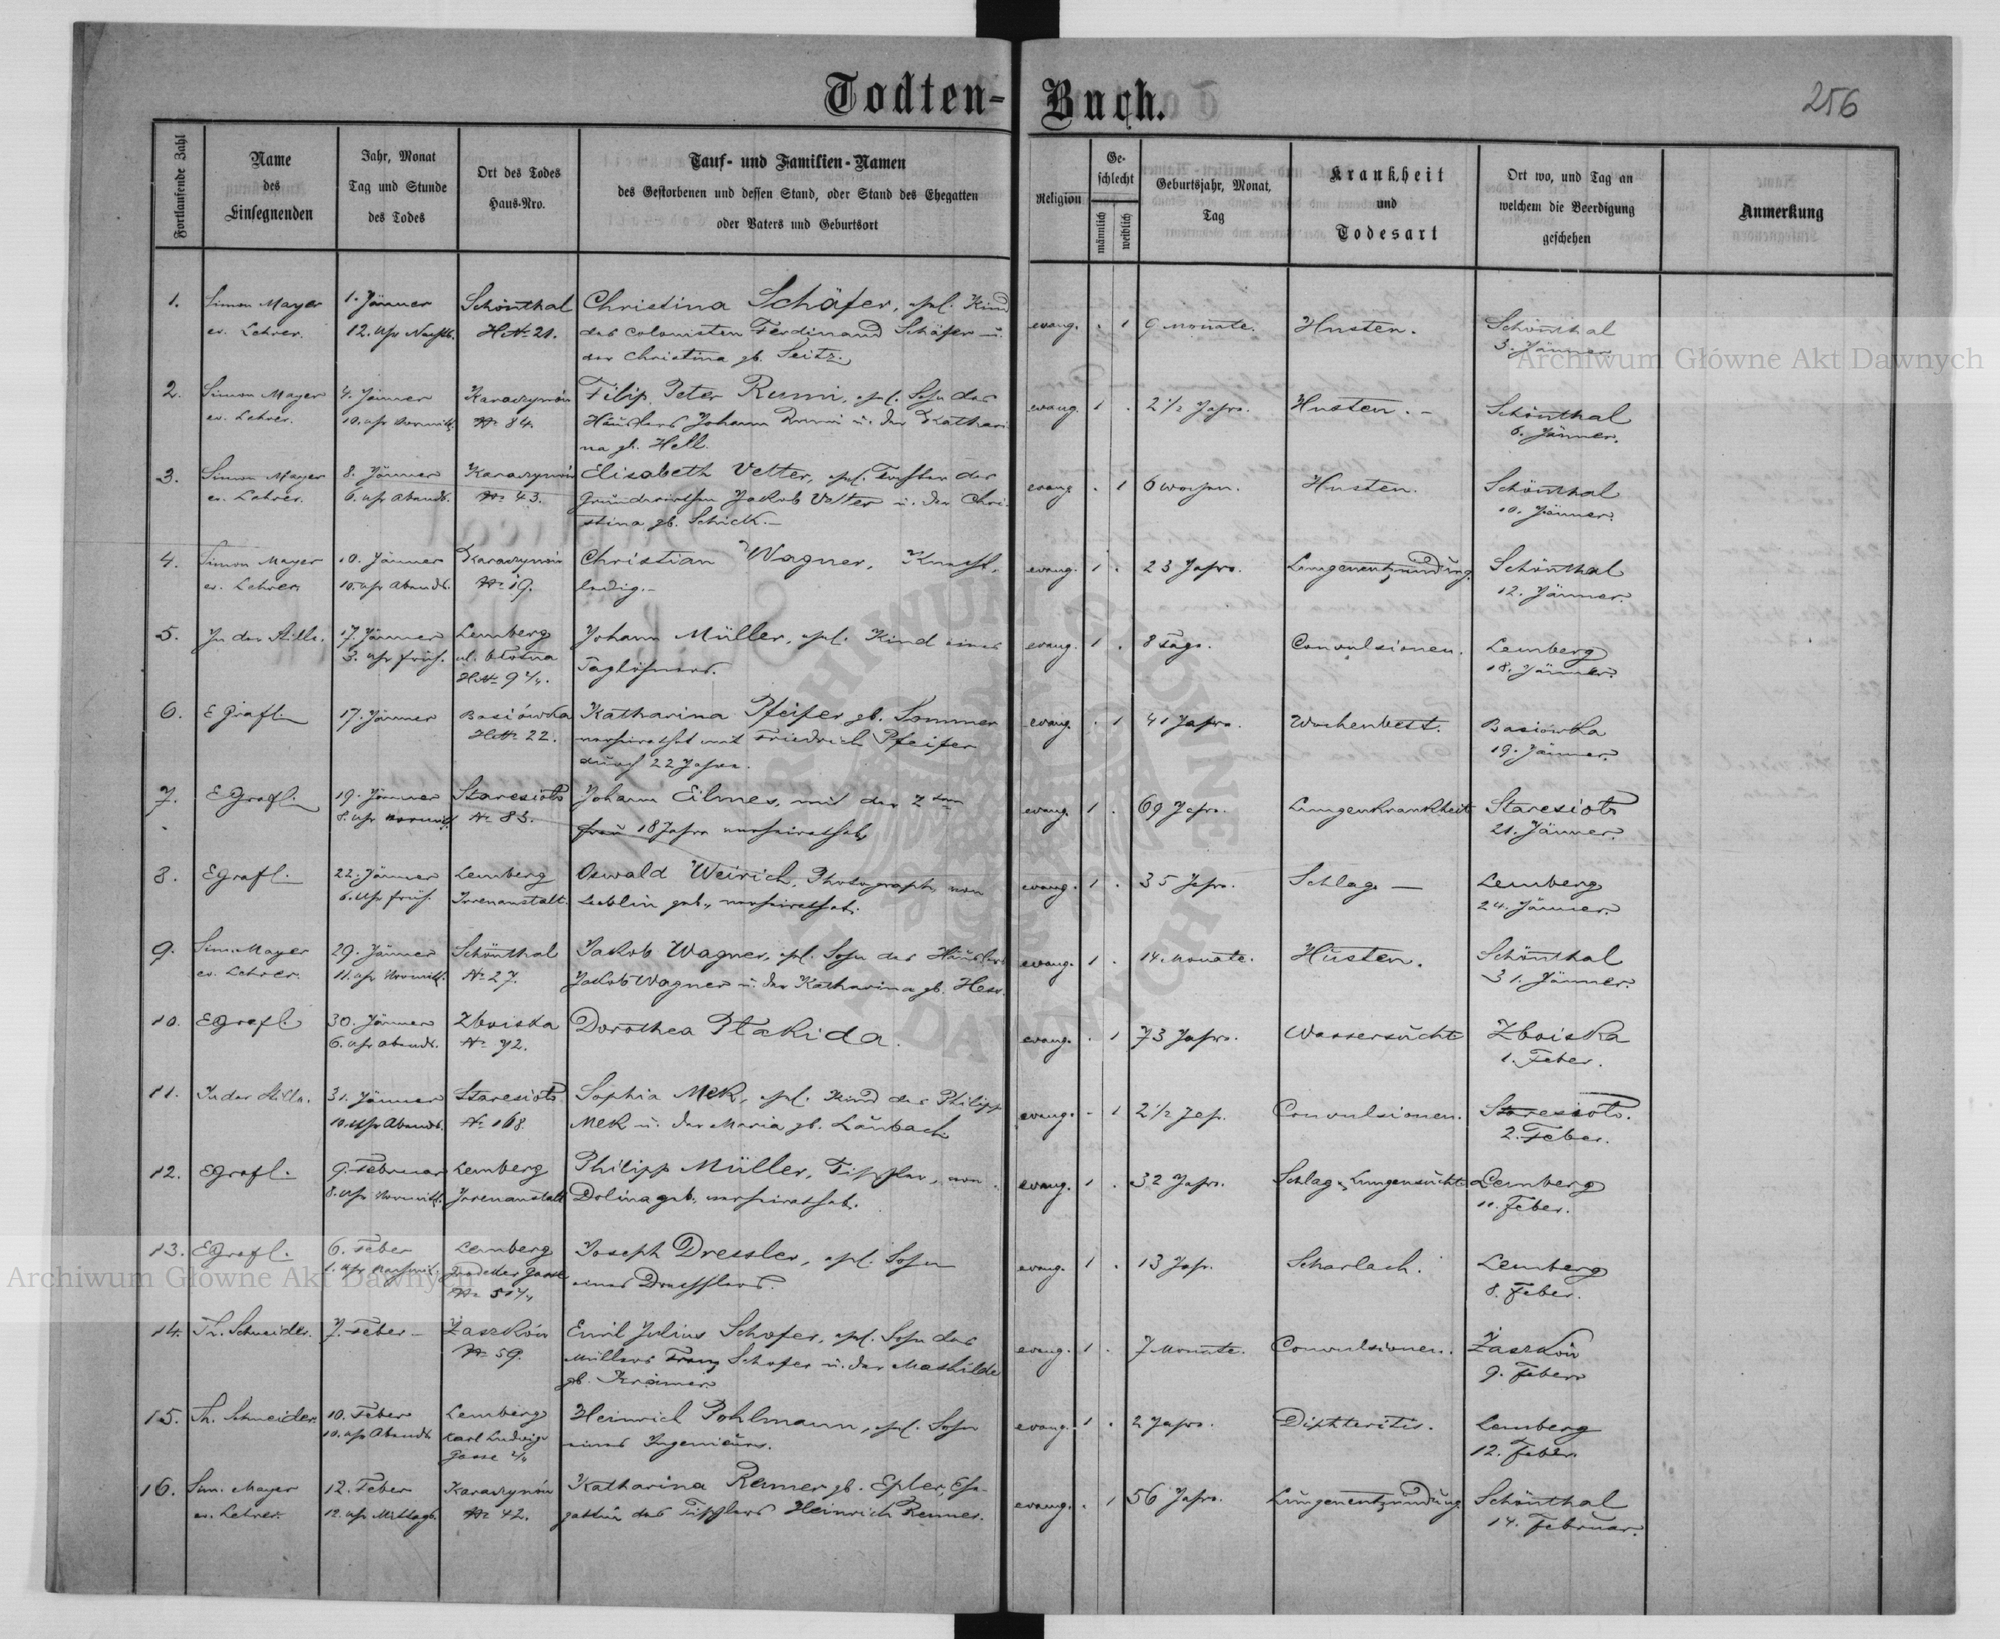 Todten-Buch.
256
Fortlaufende Zahl
Name
des
Einsegnenden
Jahr, Monat
Tag und Stunde
des Todes
Ort des Todes
Haus-Nro.
Tauf- und Familien-Namen
des Gestorbenen und dessen Stand, oder Stand des Ehegatten
oder Vaters und Geburtsort
Religion
Ge-
schlecht
männlich
weiblich
Geburtsjahr, Monat,
Tag
Krankheit
und
Todesart
Ort wo, und Tag an
welchem die Beerdigung
geschehen
Anmerkung
1. Simon Mayer 1. Jänner Schönthal Christina Schäfer, ehel. Kind evang. . 1 9 Monate. Husten. Schönthal
ev. Lehrer. 12. Uhr Nachts. H.№ 21. des Colonisten Ferdinand Schäfer u. 3. Jänner.
der Christina gb. Seitz.
2. Simon Mayer 4. Jänner Karaczynów Filip Peter Rumi, ehel. Sohn des evang. 1 . 2 1/2 Jahre. Husten. - Schönthal
ev. Lehrer. 10. Uhr Vormitt. № 84. Häuslers Johann Rumi u. der Kathari 6. Jänner.
na gb. Hell.
3. Simon Mayer 8. Jänner Karaczynów Elisabeth Vetter, ehel. Tochter des evang. . 1 6 Wochen. Husten. Schönthal
ev. Lehrer. 6. Uhr Abends. № 43. Grundwirthen Jakob Vetter u. der Chri- 10. Jänner.
stina gb. Schick. -
4. Simon Mayer 10. Jänner Karaczynów Christian Wagner, Knecht, evang. 1 . 23 Jahre. Lungenentzündung. Schönthal
ev. Lehrer. 10. Uhr Abends. № 19. ledig. - 12. Jänner.
5. In der Stille. 17. Jänner Lemberg Johann Müller, ehel. Kind eines evang. 1 . 8 Tage. Convulsionen. Lemberg
3. Uhr früh. ul. H.№ 9 Taglöhners. 18. Jänner.
6. E Grafl 17. Jänner Basiówka Katharina Pfeifer gb. Sommer evang. . 1 41 Jahre. Wochenbett. Basiówka
H.№ 22. verheirathet mit Friedrich Pfeifer 19. Jänner.
durch 22 Jahre.
7. E Grafl 19. Jänner Staresioło Johann Eilmes, mit der 2ten evang. 1 . 69 Jahre. Lungenkrankheit Staresioło
8. Uhr Vormitt. № 83. Frau 18 Jahre verheirathet 21. Jänner.
8. E Grafl. 22. Jänner Lemberg Oswald Weirich, Photograph, von evang. 1 . 35 Jahre. Schlag - Lemberg
6. Uhr früh. Irrenanstalt. Lublin geb., verheirathet. 24. Jänner.
9. Sim. Mayer 29. Jänner Schönthal Jakob Wagner, ehel. Sohn des Häuslers evang. 1 . 14 Monate. Husten. Schönthal
ev. Lehrer. 11. Uhr Vormitt. № 27. Jakob Wagner u. der Katharina gb. Hess. 31. Jänner.
10. E Grafl. 30. Jänner Zboiska Dorothea Ptakida. evang. . 1 73 Jahre. Wassersucht Zboiska
6. Uhr Abends. № 72. 1. Feber.
11. In der Stille. 31. Jänner Staresioło Sophia Mek, ehel. Kind des Philipp evang. - 1 2 1/2 Jah. Convulsionen. Staresioło.
10. Uhr Abends. № 168. Mek u. der Maria gb. Laubach 2. Feber.
12. E Grafl. 9. Februar Lemberg Philipp Müller, Tischler, von evang. 1 . 32 Jahre. Schlag. Lungensucht Lemberg
8. Uhr Vormitt. Irrenanstalt Dolina geb. verheirathet. 11. Feber.
13. E Grafl. 6. Feber Lemberg Joseph Dressler, ehel. Sohn evang. 1 . 13 Jahr. Scharlach. Lemberg
1. Uhr Nachmit. Grodeker Gasse eines Drechslers. 8. Feber.
14. Th. Schneider. 7. Feber - Żaszków Emil Julius Schofer, ehel. Sohn des evang. 1 . 7 Monate. Convulsionen. Żaszków
№ 59. Müllers Franz Schofer u. der Mathilde 9. Feber
gb. Kramer
15. Th. Schneider. 10. Feber Lemberg Heinrich Pohlmann, ehel. Sohn evang. 1 . 2 Jahre. Diphteritis. Lemberg
10. Uhr Abends Karl Ludwig eines Ingenieurs. 12. Feber.
Gasse
16. Sim. Mayer 12. Feber Karaczynów Katharina Renner gb. Epler, Ehe- evang. . 1 56 Jahre. Lungenentzündung. Schönthal
ev. Lehrer. 12. Uhr Mittags. № 42. gattin des Tischlers Heinrich Renner. 14. Februar.
Archiwum Główne Akt Dawnych
Archiwum Główne Akt Dawnych
ARCHIWUM GŁÓWNE AKT DAWNYCH